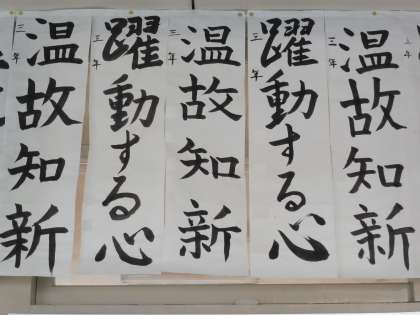 三年
温故知新
三年
躍動する心
三年
温故知新
三年
躍動する心
三年
温故知新
三年